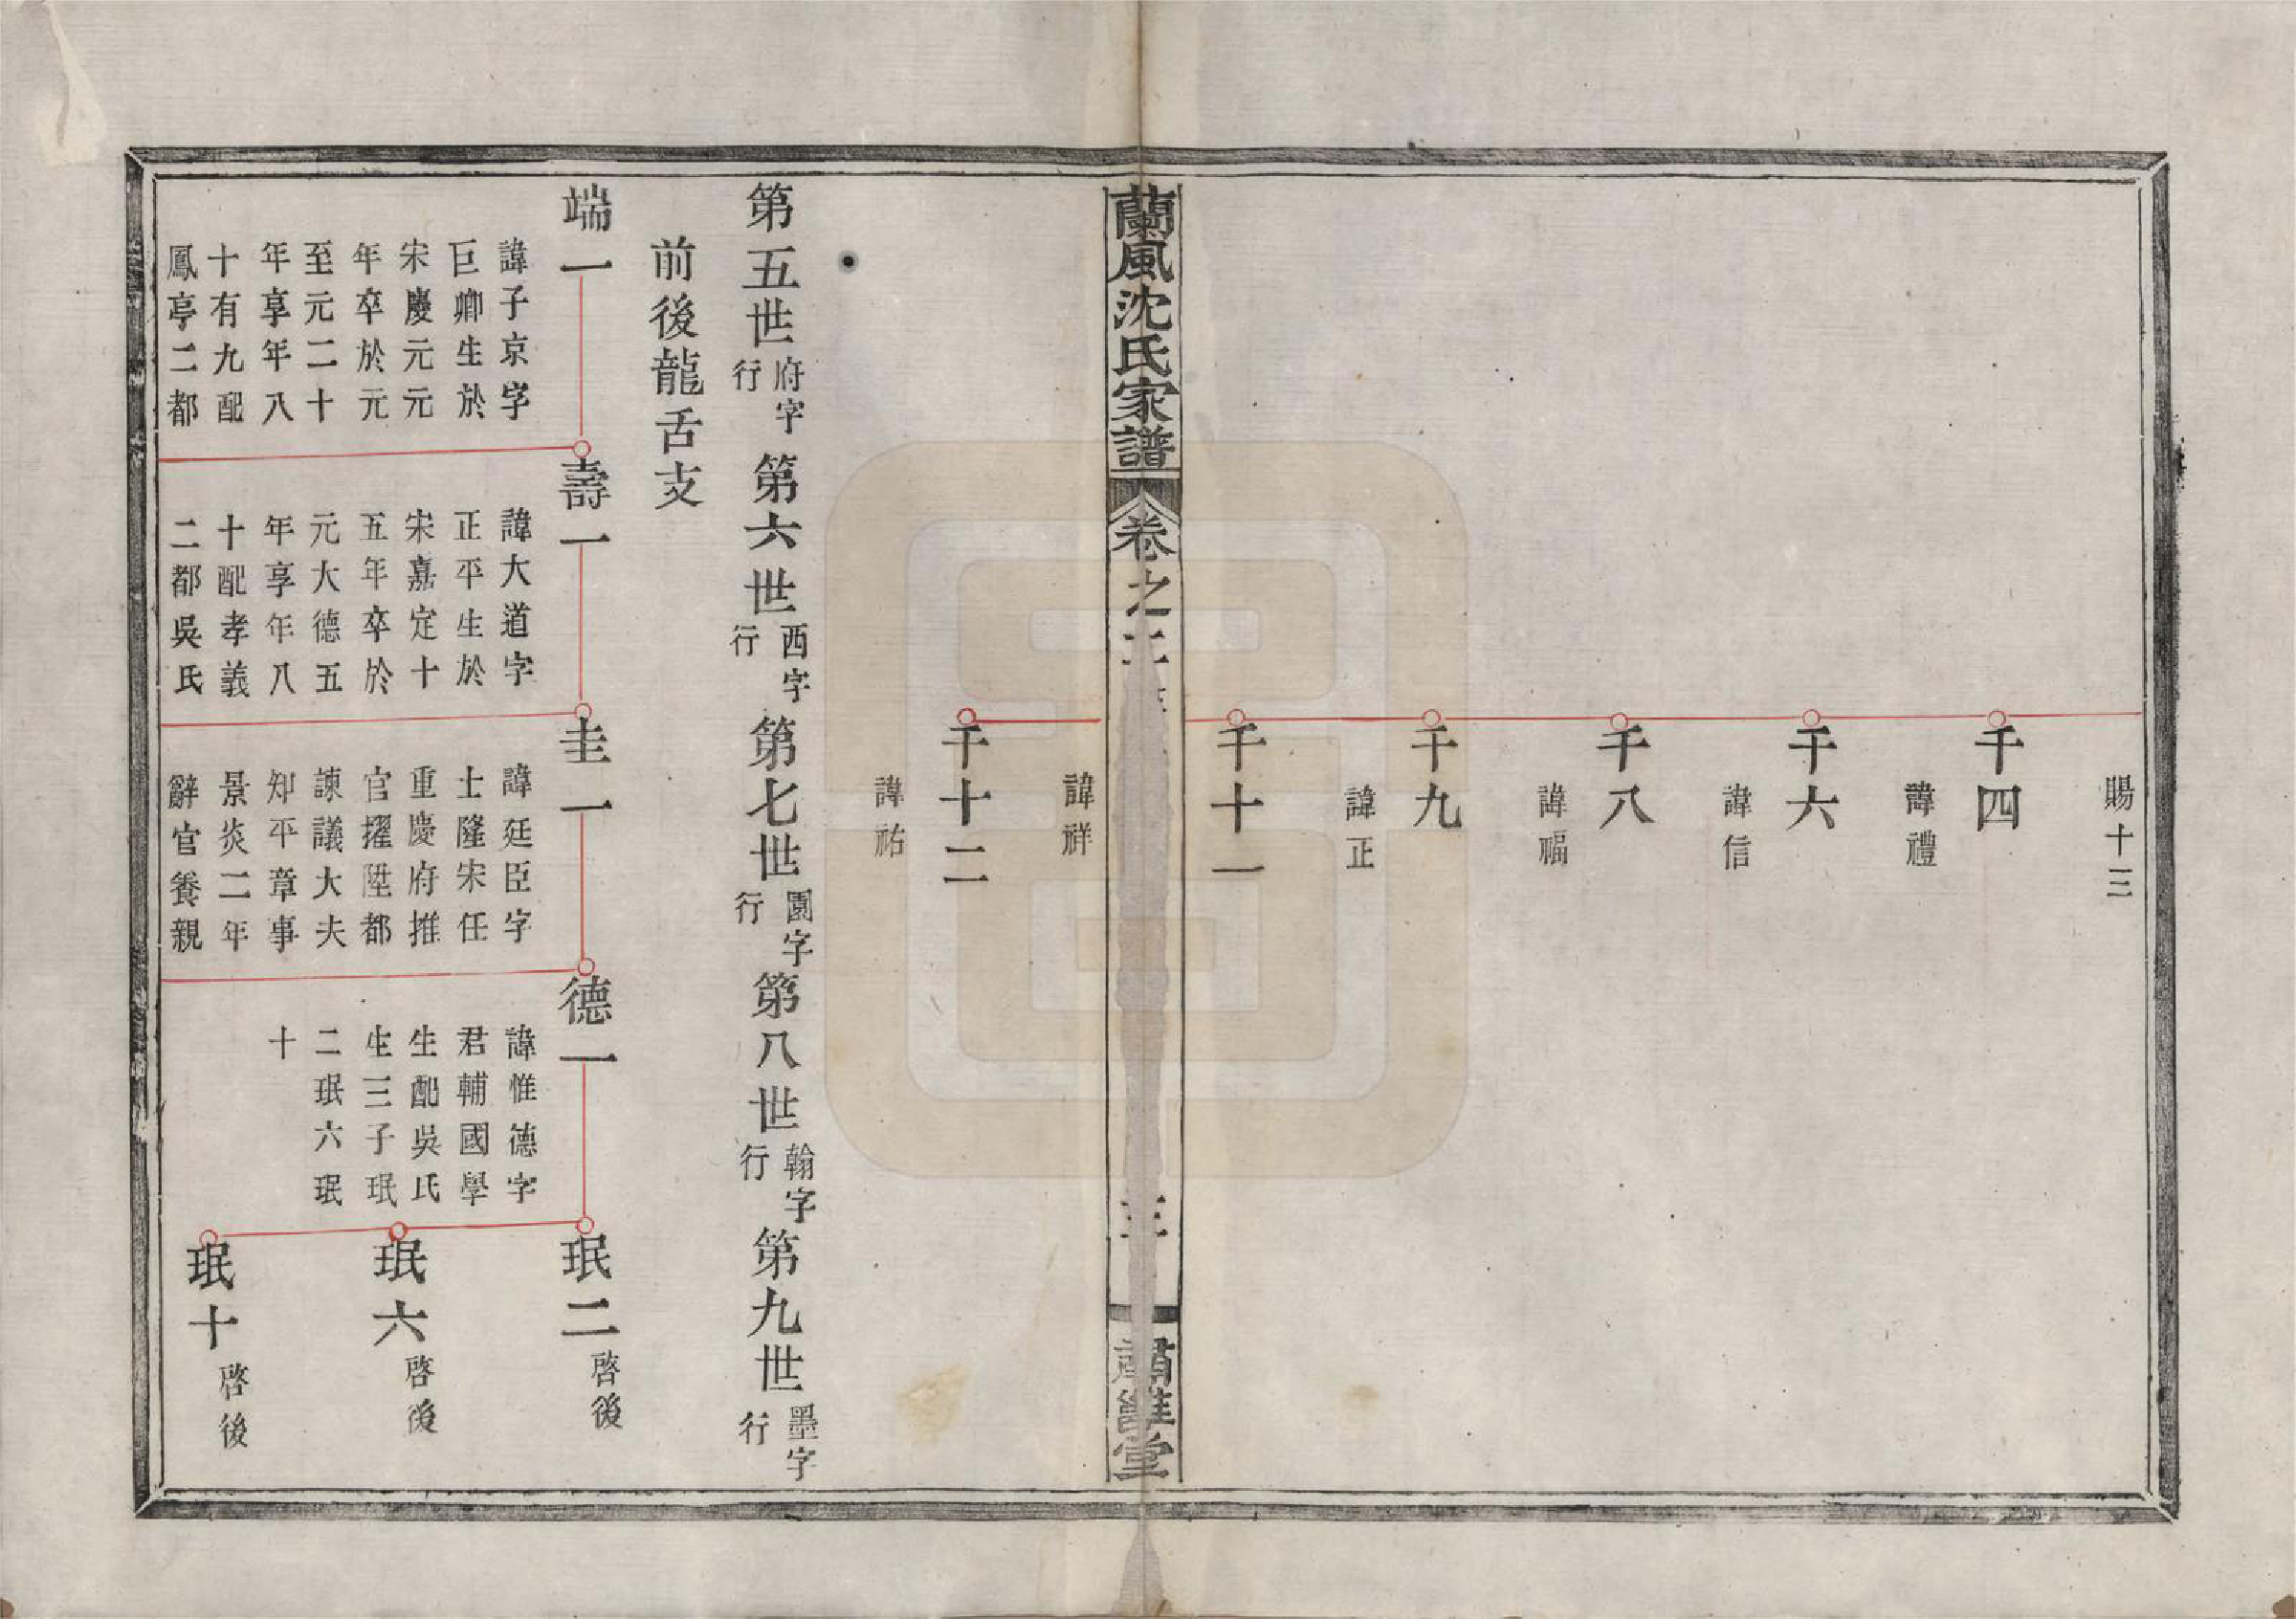 賜十三
千四
諱禮
千六
諱信
千八
諱福
千九
諱正
千十一
諱祥
蘭風沈氏家譜
卷之二
三
肅雝堂
千十二
諱祐
第五世
府字
行
第六世
西字
行
第七世
園字
行
第八世
翰字
行
第九世
墨字
行
前後龍舌支
端一
諱子京字
巨卿生於
宋慶元元
年卒於元
至元二十
年享年八
十有九配
鳳亭二都
壽一
諱大道字
正平生於
宋嘉定十
五年卒於
元大德五
年享年八
十配孝義
二都吳氏
圭一
諱廷臣字
士隆宋任
重慶府推
官擢陞都
諫議大夫
知平章事
景炎二年
辭官養親
德一
諱惟德字
君輔國學
生配吳氏
生三子珉
二珉六珉
十
珉二
啓後
珉六
啓後
珉十
啓後